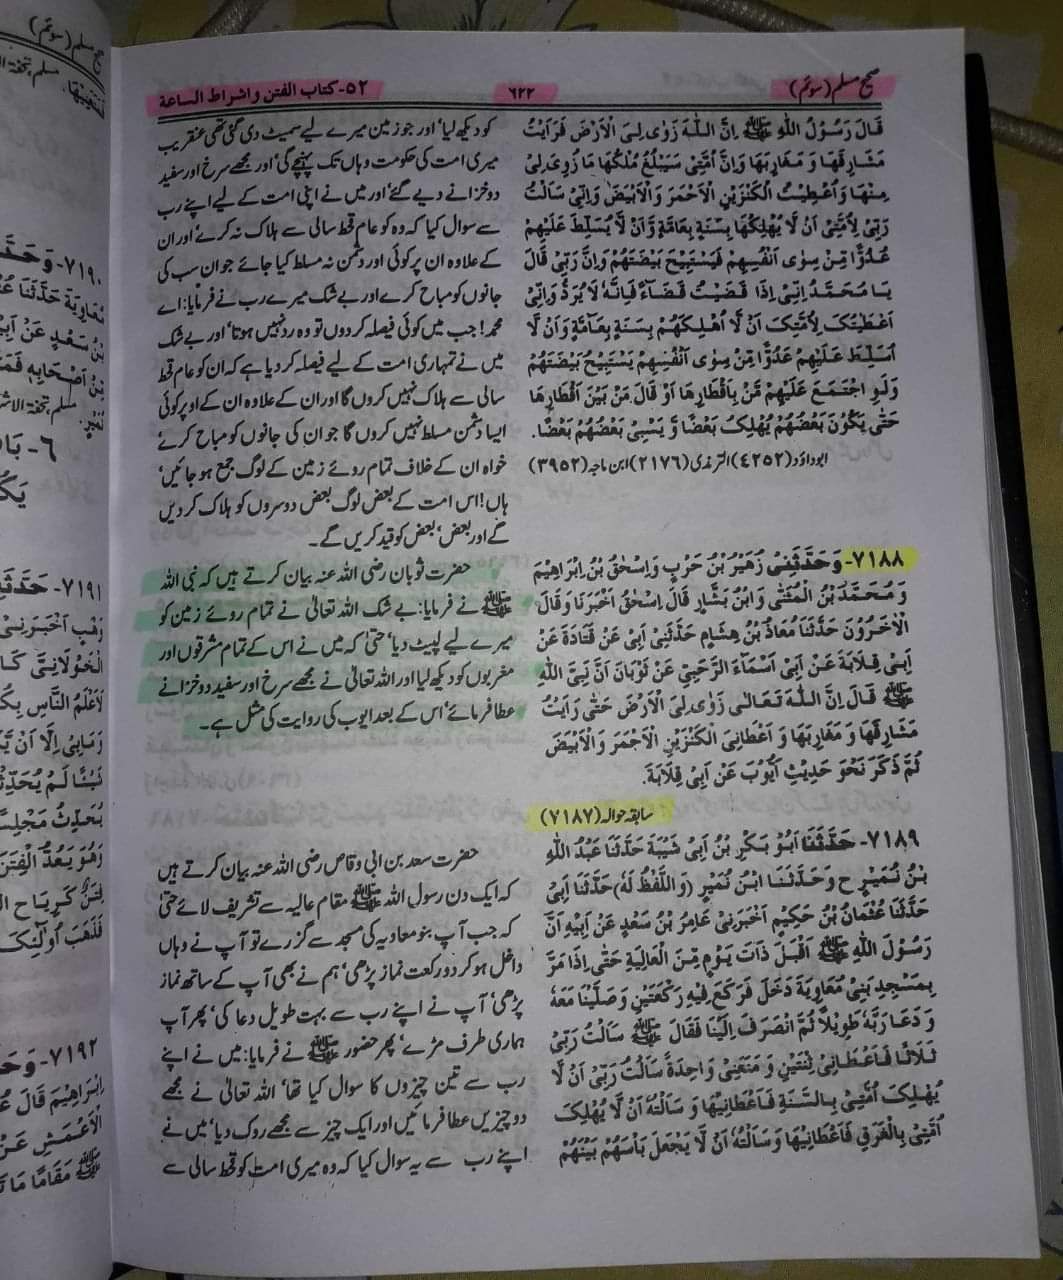 صحیح مسلم (سوئم)
٦٢٢
٥٢- کتاب الفتن و اشراط الساعة
قَالَ رَسُوْلُ اللّٰهِ ﷺ اِنَّ اللّٰهَ زَوٰی لِیَ الْاَرْضَ فَرَاَیْتُ
مَشَارِقَهَا وَ مَغَارِبَهَا وَاِنَّ اُمَّتِیْ سَیَبْلُغُ مُلْکُهَا مَا زُوِیَ لِیْ
مِنْهَا وَ اُعْطِیْتُ الْکَنْزَیْنِ الْاَحْمَرَ وَ الْاَبْیَضَ وَاِنِّیْ سَاَلْتُ
رَبِّیْ لِاُمَّتِیْ اَنْ لَّا یُهْلِکَهَا بِسَنَةٍ بِعَامَّةٍ وَّ اَنْ لَّا یُسَلِّطَ عَلَیْهِمْ
عَدُوًّا مِّنْ سِوٰی اَنْفُسِهِمْ فَیَسْتَبِیْحَ بَیْضَتَهُمْ وَ اِنَّ رَبِّیْ قَالَ
یَا مُحَمَّدُ اِنِّیْ اِذَا قَضَیْتُ قَضَاءً فَاِنَّهٗ لَا یُرَدُّ وَاِنِّیْ
اَعْطَیْتُکَ لِاُمَّتِکَ اَنْ لَّا اُهْلِکَهُمْ بِسَنَةٍ بِعَامَّةٍ وَ اَنْ لَّا
اُسَلِّطَ عَلَیْهِمْ عَدُوًّا مِّنْ سِوٰی اَنْفُسِهِمْ یَسْتَبِیْحُ بَیْضَتَهُمْ
وَلَوِ اجْتَمَعَ عَلَیْهِمْ مَّنْ بِاَقْطَارِهَا اَوْ قَالَ مَنْ بَیْنَ اَقْطَارِهَا
حَتّٰی یَکُوْنَ بَعْضُهُمْ یُهْلِکُ بَعْضًا وَّ یَسْبِیْ بَعْضُهُمْ بَعْضًا.
ابوداؤد (٤٢٥٢) الترمذی (٢١٧٦) ابن ماجہ (٣٩٥٢)
کو دیکھ لیا، اور جو زمین میرے لیے سمیٹ دی گئی تھی عنقریب
میری امت کی حکومت وہاں تک پہنچے گی، اور مجھے سرخ اور سفید
دو خزانے دیے گئے، اور میں نے اپنی امت کے لیے اپنے رب
سے سوال کیا کہ وہ کو عام قحط سالی سے ہلاک نہ کرے، اور ان
کے علاوہ ان پر کوئی اور دشمن نہ مسلط کیا جائے جو ان سب کی
جانوں کو مباح کرے اور بے شک میرے رب نے فرمایا: اے
محمد! جب میں کوئی فیصلہ کر دوں تو وہ رد نہیں ہوتا، اور بے شک
میں نے تمہاری امت کے لیے فیصلہ کر دیا ہے کہ ان کو عام قحط
سالی سے ہلاک نہیں کروں گا اور ان کے علاوہ ان کے اوپر کوئی
ایسا دشمن مسلط نہیں کروں گا جو ان کی جانوں کو مباح کرے
خواہ ان کے خلاف تمام روئے زمین کے لوگ جمع ہو جائیں،
ہاں! اس امت کے بعض لوگ بعض دوسروں کو ہلاک کر دیں
گے اور بعض، بعض کو قید کریں گے۔
٧١٨٨- وَحَدَّثَنِیْ زُهَیْرُ بْنُ حَرْبٍ وَ اِسْحٰقُ بْنُ اِبْرَاهِیْمَ
وَ مُحَمَّدُ بْنُ الْمُثَنّٰی وَ ابْنُ بَشَّارٍ قَالَ اِسْحٰقُ اَخْبَرَنَا وَقَالَ
الْاٰخَرُوْنَ حَدَّثَنَا مُعَاذُ بْنُ هِشَامٍ حَدَّثَنِیْ اَبِیْ عَنْ قَتَادَةَ عَنْ
اَبِیْ قِلَابَةَ عَنْ اَبِیْ اَسْمَآءَ الرَّحَبِیِّ عَنْ ثَوْبَانَ اَنَّ نَبِیَّ اللّٰهِ
ﷺ قَالَ اِنَّ اللّٰهَ تَعَالٰی زَوٰی لِیَ الْاَرْضَ حَتّٰی رَاَیْتُ
مَشَارِقَهَا وَ مَغَارِبَهَا وَ اَعْطَانِیَ الْکَنْزَیْنِ الْاَحْمَرَ وَ الْاَبْیَضَ
ثُمَّ ذَکَرَ نَحْوَ حَدِیْثِ اَیُّوْبَ عَنْ اَبِیْ قِلَابَةَ.
سابقہ حوالہ (٧١٨٧)
حضرت ثوبان رضی اللہ عنہ بیان کرتے ہیں کہ نبی اللہ
ﷺ نے فرمایا: بے شک اللہ تعالیٰ نے تمام روئے زمین کو
میرے لیے لپیٹ دیا، حتیٰ کہ میں نے اس کے تمام مشرقوں اور
مغربوں کو دیکھ لیا اور اللہ تعالیٰ نے مجھے سرخ اور سفید دو خزانے
عطا فرمائے، اس کے بعد ایوب کی روایت کی مثل ہے۔
٧١٨٩- حَدَّثَنَا اَبُوْ بَکْرِ بْنُ اَبِیْ شَیْبَةَ حَدَّثَنَا عَبْدُ اللّٰهِ
بْنُ نُمَیْرٍ ح وَ حَدَّثَنَا ابْنُ نُمَیْرٍ (وَ اللَّفْظُ لَهٗ) حَدَّثَنَا اَبِیْ
حَدَّثَنَا عُثْمَانُ بْنُ حَکِیْمٍ اَخْبَرَنِیْ عَامِرُ بْنُ سَعْدٍ عَنْ اَبِیْهِ اَنَّ
رَسُوْلَ اللّٰهِ ﷺ اَقْبَلَ ذَاتَ یَوْمٍ مِّنَ الْعَالِیَةِ حَتّٰی اِذَا مَرَّ
بِمَسْجِدِ بَنِیْ مُعَاوِیَةَ دَخَلَ فَرَکَعَ فِیْهِ رَکْعَتَیْنِ وَ صَلَّیْنَا مَعَهٗ
وَ دَعَا رَبَّهٗ طَوِیْلًا ثُمَّ انْصَرَفَ اِلَیْنَا فَقَالَ ﷺ سَاَلْتُ رَبِّیْ
ثَلَاثًا فَاَعْطَانِیْ ثِنْتَیْنِ وَ مَنَعَنِیْ وَاحِدَةً سَاَلْتُ رَبِّیْ اَنْ لَّا
یُهْلِکَ اُمَّتِیْ بِالسَّنَةِ فَاَعْطَانِیْهَا وَ سَاَلْتُهٗ اَنْ لَّا یُهْلِکَ
اُمَّتِیْ بِالْغَرَقِ فَاَعْطَانِیْهَا وَسَاَلْتُهٗ اَنْ لَّا یَجْعَلَ بَاْسَهُمْ بَیْنَهُمْ
حضرت سعد بن ابی وقاص رضی اللہ عنہ بیان کرتے ہیں
کہ ایک دن رسول اللہ ﷺ مقام عالیہ سے تشریف لائے حتیٰ
کہ جب آپ بنو معاویہ کی مسجد سے گزرے تو آپ نے وہاں
داخل ہو کر دو رکعت نماز پڑھی، ہم نے بھی آپ کے ساتھ نماز
پڑھی، آپ نے اپنے رب سے بہت طویل دعا کی، پھر آپ
ہماری طرف مڑے، پھر حضور ﷺ نے فرمایا: میں نے اپنے
رب سے تین چیزوں کا سوال کیا تھا، اللہ تعالیٰ نے مجھے
دو چیزیں عطا فرمائیں اور ایک چیز سے مجھے روک دیا، میں نے
اپنے رب سے یہ سوال کیا کہ وہ میری امت کو قحط سالی سے
٧١٩٠- وَحَدَّ
مُعَاوِیَةَ حَدَّثَنَا
بْنُ سَعْدٍ عَنْ
٦- بَا
٧١٩١- حَدَّثَنِ
وَهْبٍ اَخْبَرَنِیْ
٧١٩٢- وَحَ
اِبْرَاهِیْمَ قَالَ
الْاَعْمَشِ عَنْ
ﷺ مَقَامًا مَا